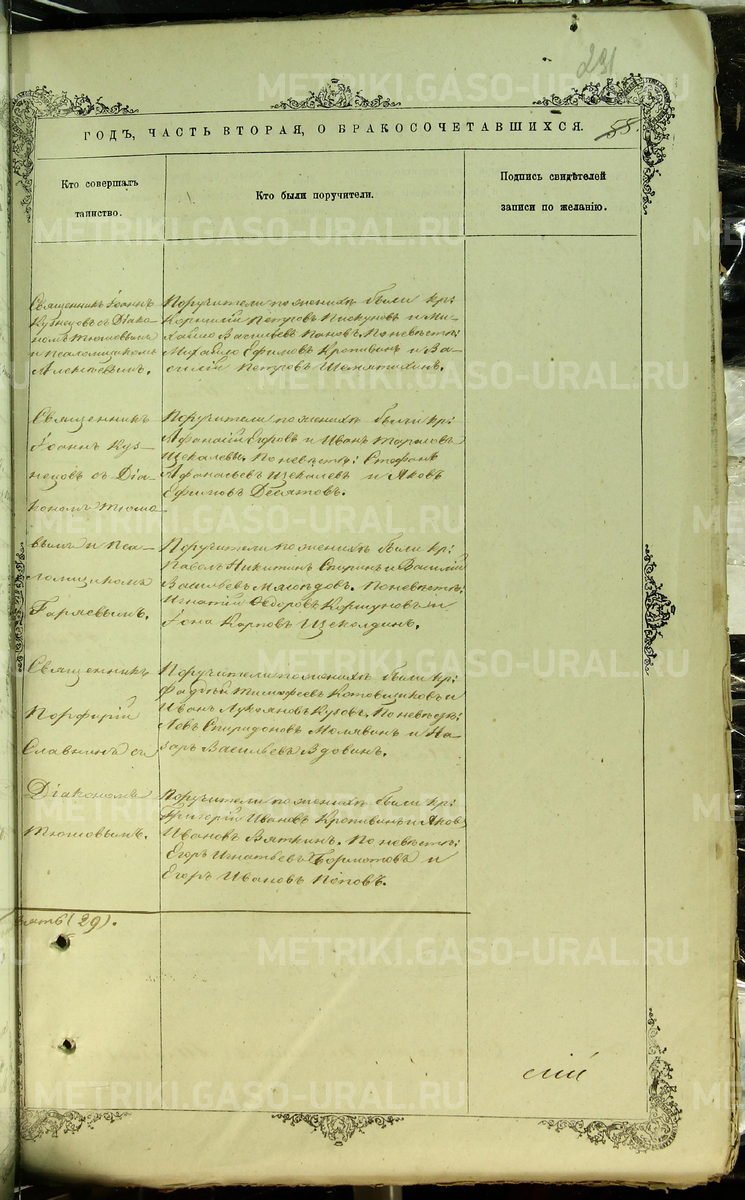 231
ГОДЪ, ЧАСТЬ ВТОРАЯ, О БРАКОСОЧЕТАВШИХСЯ.
58.
Кто совершалъ
таинство.
Кто были поручители.
Подпись свидѣтелей
записи по желанію.
Священникъ Іоаннъ
Кузнецовъ съ Діако-
номъ Тюшовымъ
и Псаломщикомъ
Алексѣевымъ.
Поручители по женихѣ были кр:
Корнилій Петровъ Пискуновъ и Ми-
хайло Васильевъ Поновъ. По невѣстѣ:
Михайло Ефимовъ Кропивинъ и Ва-
силій Петровъ
Священникъ
Іоаннъ Куз-
нецовъ съ Діа-
кономъ Тюшо-
вымъ и Пса-
ломщикомъ
Гаряевымъ.
Поручители по женихѣ были кр:
Афанасій Егоровъ и Иванъ Тарасовъ
Щекалевы. По невѣстѣ: Стефанъ
Афанасьевъ Щекалевъ и Яковъ
Ефимовъ Десятовъ.
Поручители по женихѣ были кр:
Павелъ Никитинъ Спиринъ и Василій
Васильевъ По невѣстѣ:
Игнатій Ѳедоровъ Коршуновъ и
Іона Карповъ Щеколдинъ.
Священникъ
Порфирій
Славнинъ съ
Діакономъ
Тюшовымъ.
Поручители по женихѣ были кр:
Фаддѣй Тимофеевъ Котовщиковъ и
Иванъ Лукояновъ По невѣстѣ:
Левъ Спиридоновъ Молявинъ и На-
заръ Васильевъ Вдовинъ.
Поручители по женихѣ были кр:
Григорій Ивановъ Кропивинъ и Яковъ
Ивановъ Вяткинъ. По невѣстѣ:
Егоръ Игнатьевъ Бормотовъ и
Егоръ Ивановъ Поповъ.
(29).
слій
METRIKI.GASO-URAL.RU